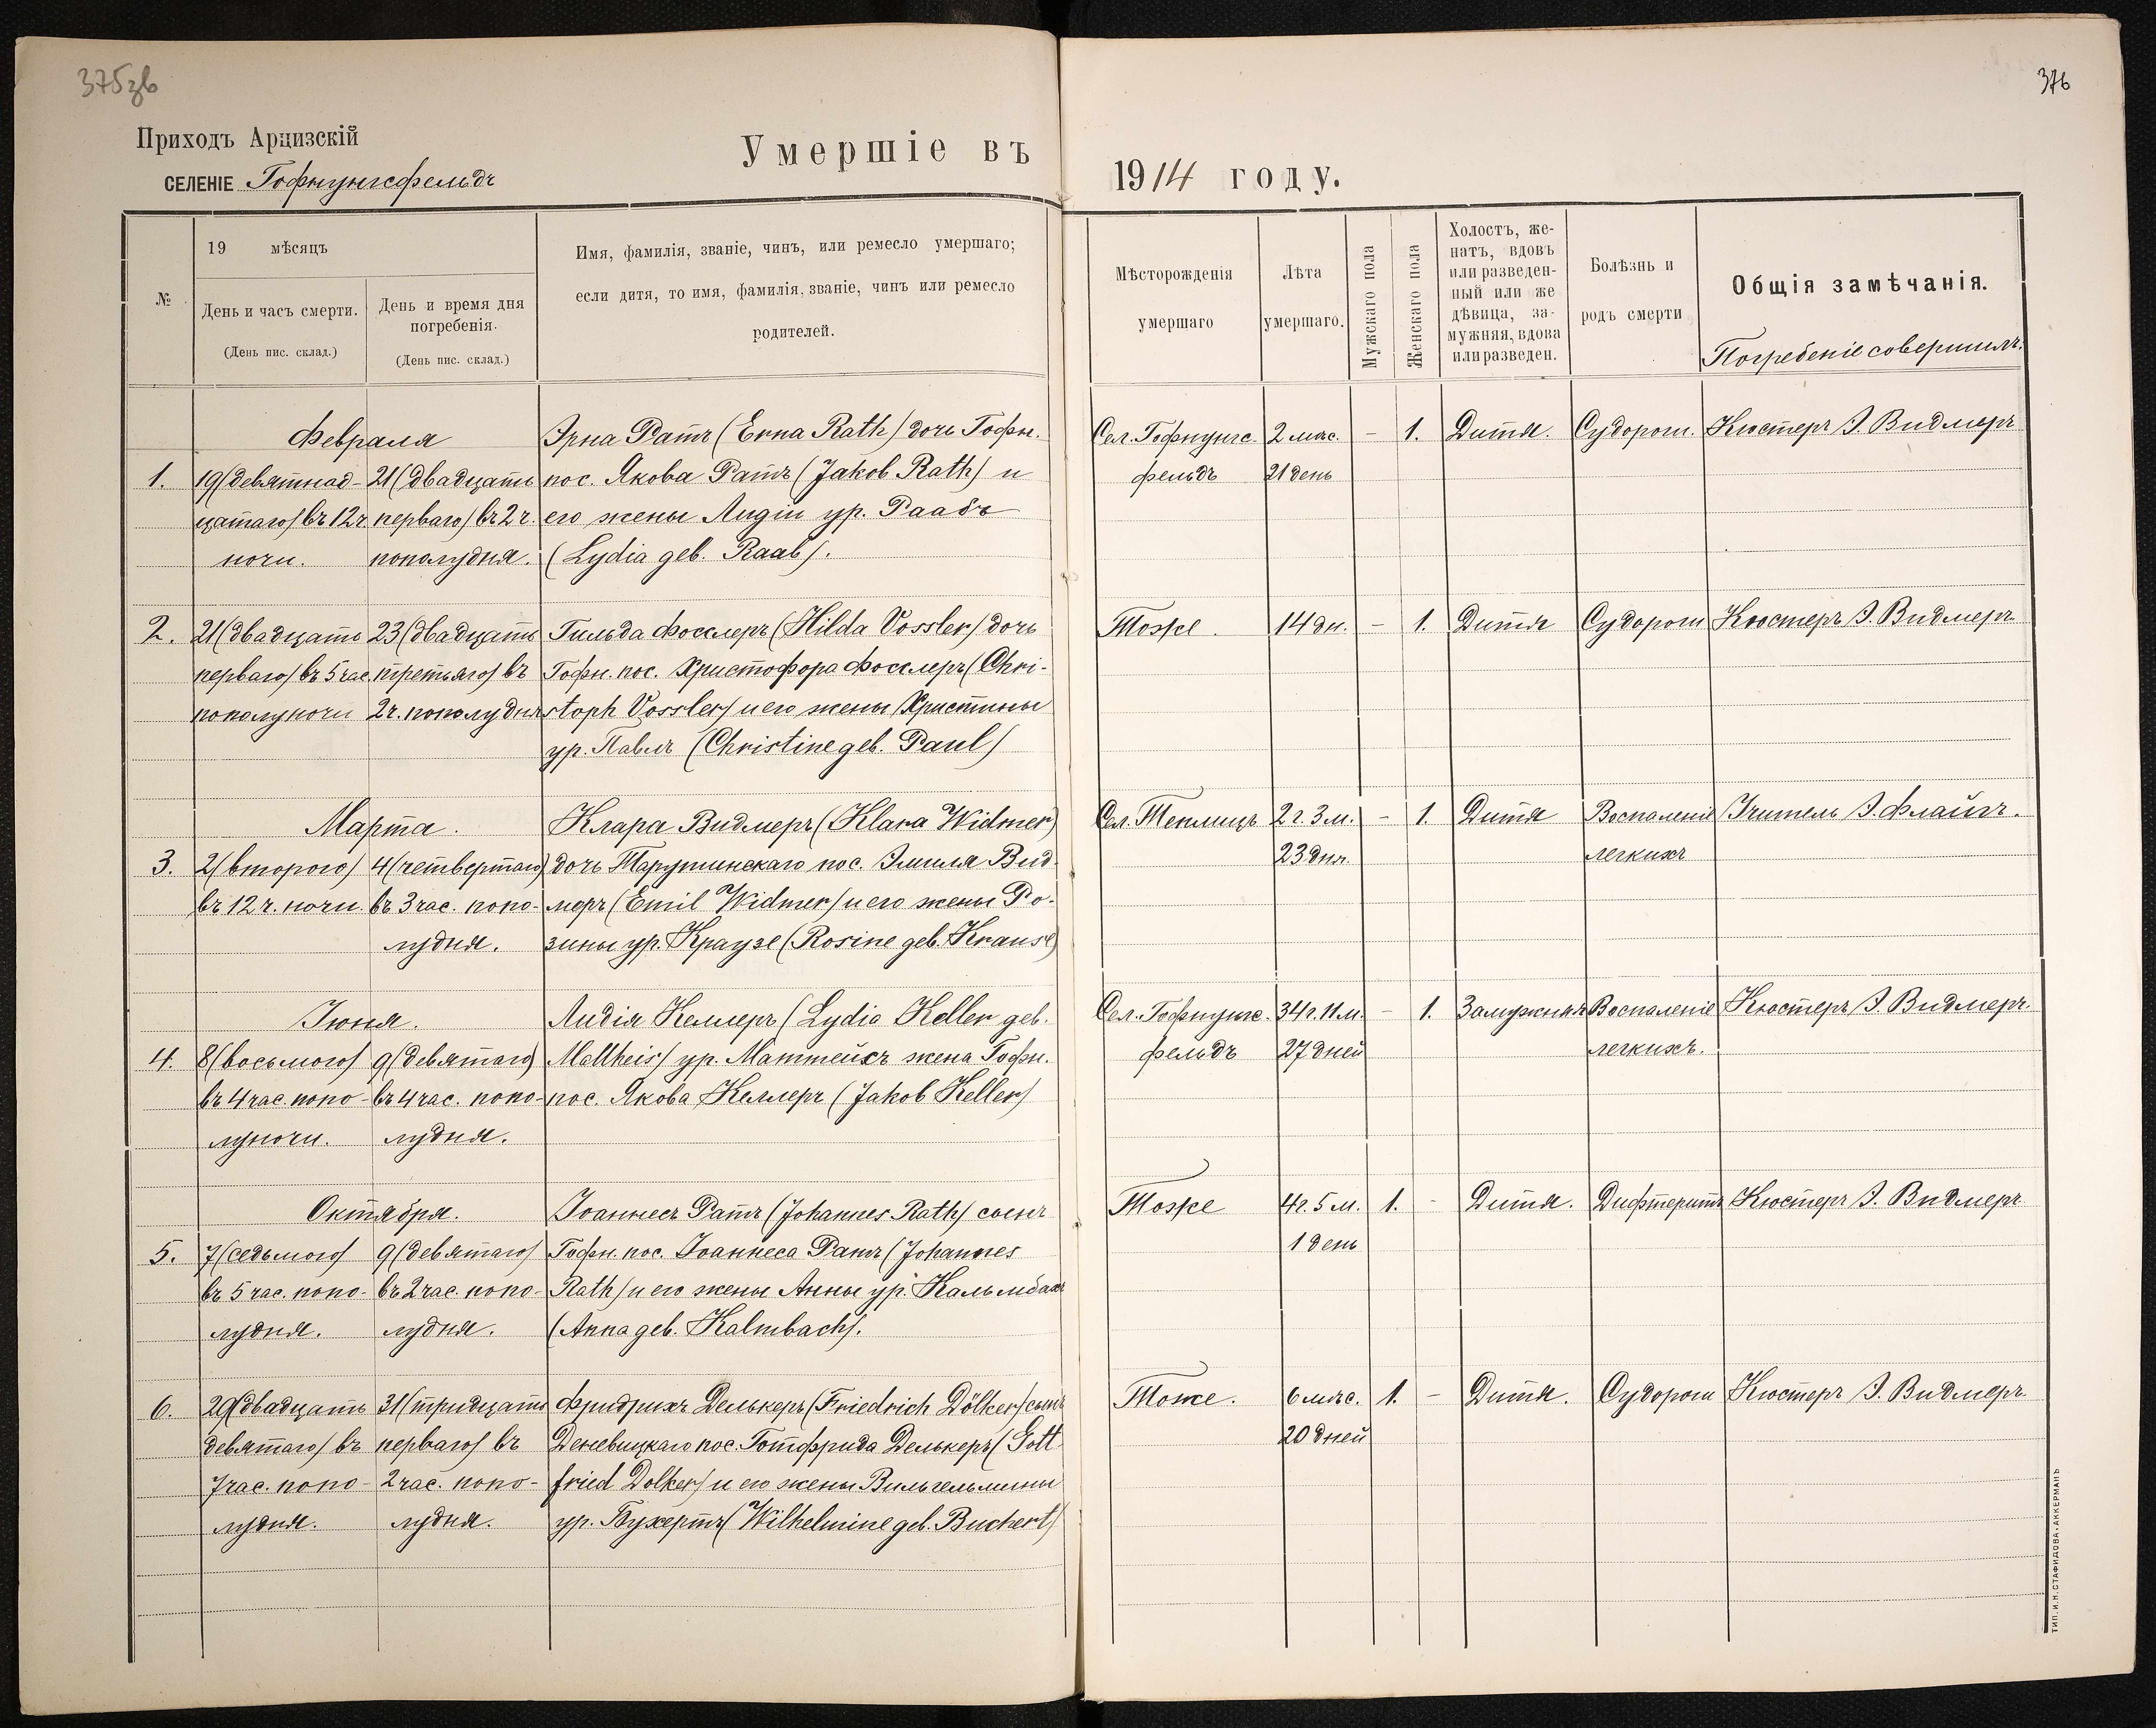 375зв
376
Приходъ Арцизскій
СЕЛЕНІЕ Гофнунгсфельдъ
Умершіе въ 1914 году.
№
19 мѣсяцъ
День и часъ смерти.
(День пис. склад.)
День и время дня
погребенія.
(День пис. склад.)
Имя, фамилія, званіе, чинъ, или ремесло умершаго;
если дитя, то имя, фамилія, званіе, чинъ или ремесло
родителей.
Мѣсторожденія
умершаго
Лѣта
умершаго.
Мужскаго пола
Женскаго пола
Холостъ, же-
натъ, вдовъ
или разведен-
ный или же
дѣвица, за-
мужняя, вдова
или разведен.
Болѣзнь и
родъ смерти
Общія замѣчанія.
Погребеніе совершилъ.
Февраля
1.
19 (девятнад-
цатаго) въ 12 ч.
ночи.
21 (двадцать
перваго) въ 2 ч.
пополудня.
Эрна Ратъ (Erna Rath) дочь Гофн.
пос. Якова Ратъ (Jakob Rath) и
его жены Лидіи ур. Раабъ
(Lydia geb. Raab).
Сел. Гофнунгс.
фельдъ
2 мѣс.
21 день
–
1.
Дитя.
Судороги.
Кюстеръ І. Видмеръ
2.
21 (двадцать
перваго) въ 5 час.
пополуночи
23 (двадцать
третьяго) въ
2 ч. пополудня
Гильда Фосслеръ (Hilda Vossler) дочь
Гофн. пос. Христофора Фосслеръ (Chri-
stoph Vossler) и его жены Христины
ур. Павлъ (Christine geb. Paul)
Тоже.
14 дн.
–
1.
Дитя
Судороги
Кюстеръ І. Видмеръ
Марта.
3.
2 (второго)
въ 12 ч. ночи.
4 (четвертаго)
въ 3 час. попо-
лудня.
Клара Видмеръ (Klara Widmer)
дочь Тарутинскаго пос. Эмиля Вид-
меръ (Emil Widmer) и его жены Ро-
зины ур. Краузе (Rosine geb. Krause)
Сел. Теплицъ
2 г. 3 м.
23 дня.
–
1.
Дитя
Воспаленіе
легкихъ
Учитель І. Флайгъ.
Іюня.
4.
8 (восьмого)
въ 4 час. попо-
луночи.
9 (девятаго)
въ 4 час. попо-
лудня.
Лидія Келлеръ (Lydia Keller geb.
Mattheis) ур. Маттейсъ жена Гофн.
пос. Якова Келлеръ (Jakob Keller)
Сел. Гофнунгс.
фельдъ
34 г. 11 м.
27 дней
–
1.
Замужняя
Воспаленіе
легкихъ.
Кюстеръ І. Видмеръ.
Октября.
5.
7 (седьмого)
въ 5 час. попо-
лудня.
9 (девятаго)
въ 2 час. попо-
лудня.
Іоаннесъ Ратъ (Johannes Rath) сынъ
Гофн. пос. Іоаннеса Ратъ (Johannes
Rath) и его жены Анны ур. Кальмбахъ
(Anna geb. Kalmbach).
Тоже
4 г. 5 м.
1 день
1.
–
Дитя.
Дифтеритъ
Кюстеръ І. Видмеръ
6.
29 (двадцать
девятаго) въ
7 час. попо-
лудня.
31 (тридцать
перваго) въ
2 час. попо-
лудня.
Фридрихъ Делькеръ (Friedrich Dölker) сынъ
Денневицкаго пос. Готфрида Делькеръ (Gott-
fried Dölker) и его жены Вильгельмины
ур. Бухертъ (Wilhelmine geb. Buchert)
Тоже.
6 мѣс.
20 дней
1.
–
Дитя.
Судороги
Кюстеръ І. Видмеръ
ТИП. И. Н. СТАФИДОВА • АККЕРМАНЪ